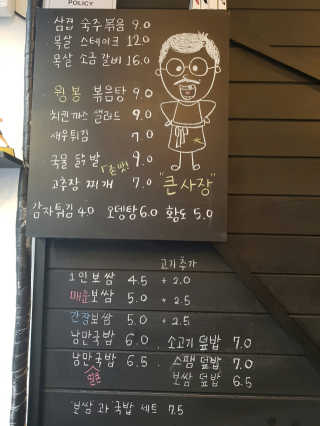 POLICY
삼겹 숙주볶음 9.0
목살 스테이크 12.0
목살 소금 갈비 16.0
윙봉 볶음탕 9.0
치킨까스 샐러드 9.0
새우튀김 7.0
국물 닭발 9.0
고추장 찌개 7.0
"큰사장"
감자튀김 4.0 오뎅탕 6.0 황도 5.0
고기추가
1인보쌈 4.5 + 2.0
매운보쌈 5.0 + 2.5
간장보쌈 5.0 + 2.5
낭만국밥 6.0 . 소고기 덮밥 7.0
낭만국밥 6.5 . 스팸 덮밥 7.0
얼큰 보쌈 덮밥 6.5
보쌈 과 국밥 세트 7.5